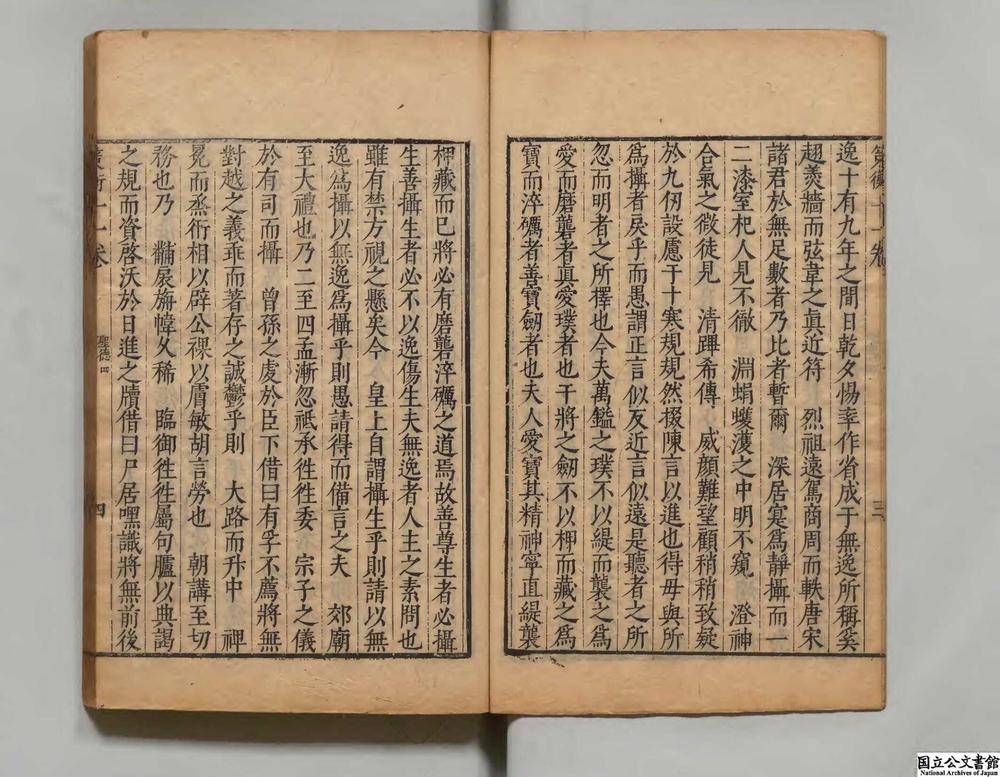 逸十有九年之間日乾夕惕率作省成于無逸所稱奚
趐羹牆而弦韋之眞近符　烈祖遠駕商周而軼唐宋
諸君於無足數者乃比者暫爾　深居寔爲靜攝而一
二漆室杞人見不徹　淵蜎蠖濩之中明不窺　澄神
合氣之微徒見　清蹕希傳　威顏難望顧稍稍致疑
於九仞設慮于十寒規規然掇陳言以進也得毋與所
爲攝者戾乎而愚謂正言似反近言似遠是聽者之所
忽而明者之所擇也今夫萬鎰之璞不以緹而襲之爲
愛而磨礱者眞愛璞者也干將之劒不以柙而藏之爲
寶而淬礪者善寶劒者也夫人愛寶其精神寧直緹襲
三
柙藏而巳將必有磨礱淬礪之道焉故善尊生者必攝
生善攝生者必不以逸傷生夫無逸者人主之素問也
雖有禁方視之懸矣今　皇上自謂攝生乎則請以無
逸爲攝以無逸爲攝乎則愚請得而備言之夫　郊廟
至大禮也乃二至四孟漸忽祇承徃徃委　宗子之儀
於有司而攝　曾孫之䖍於臣下借曰有孚不薦將無
對越之義乖而著存之誠鬱乎則　大路而升中　禆
冕而烝衎相以辟公祼以膚敏胡言勞也　朝講至切
務也乃　黼扆旃幃乆稀　臨御徃徃屬句臚以典謁
之規而資啓沃於日進之牘借曰尸居嘿識將無前後
聖德四
四
国立公文書館
National Archives of Japan